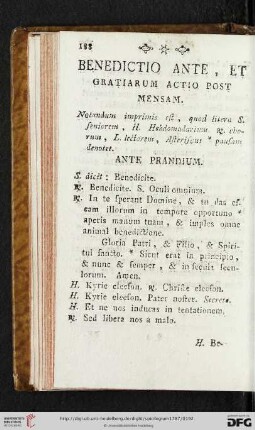 188
BENEDICTIO ANTE, ET
GRATIARUM ACTIO POST
MENSAM.
Notandum imprimis est, quod litera S.
seniorem, H. Hebdomadarium ℟. cho-
rum, L. lectorem, Asteriscus * pausam
denotet.
ANTE PRANDIUM.
S. dicit: Benedicite.
℟. Benedicite. S. Oculi omnium.
℟. In te sperant Domine, & tu das es-
cam illorum in tempore opportuno *
aperis manum tuam, & imples omne
animal benedictione.
Gloria Patri, & Filio, & Spiri-
tui sancto. * Sicut erat in principio,
& nunc & semper, & in secula secu-
lorum. Amen.
H. Kyrie eleeson. ℟. Christe eleeson.
H. Kyrie eleeson. Pater noster. Secreto.
H. Et ne nos inducas in tentationem.
℟. Sed libera nos a malo.
H. Be-
UNIVERSITÄTS-BIBLIOTHEK HEIDELBERG
© Universitätsbibliothek Heidelberg
DFG